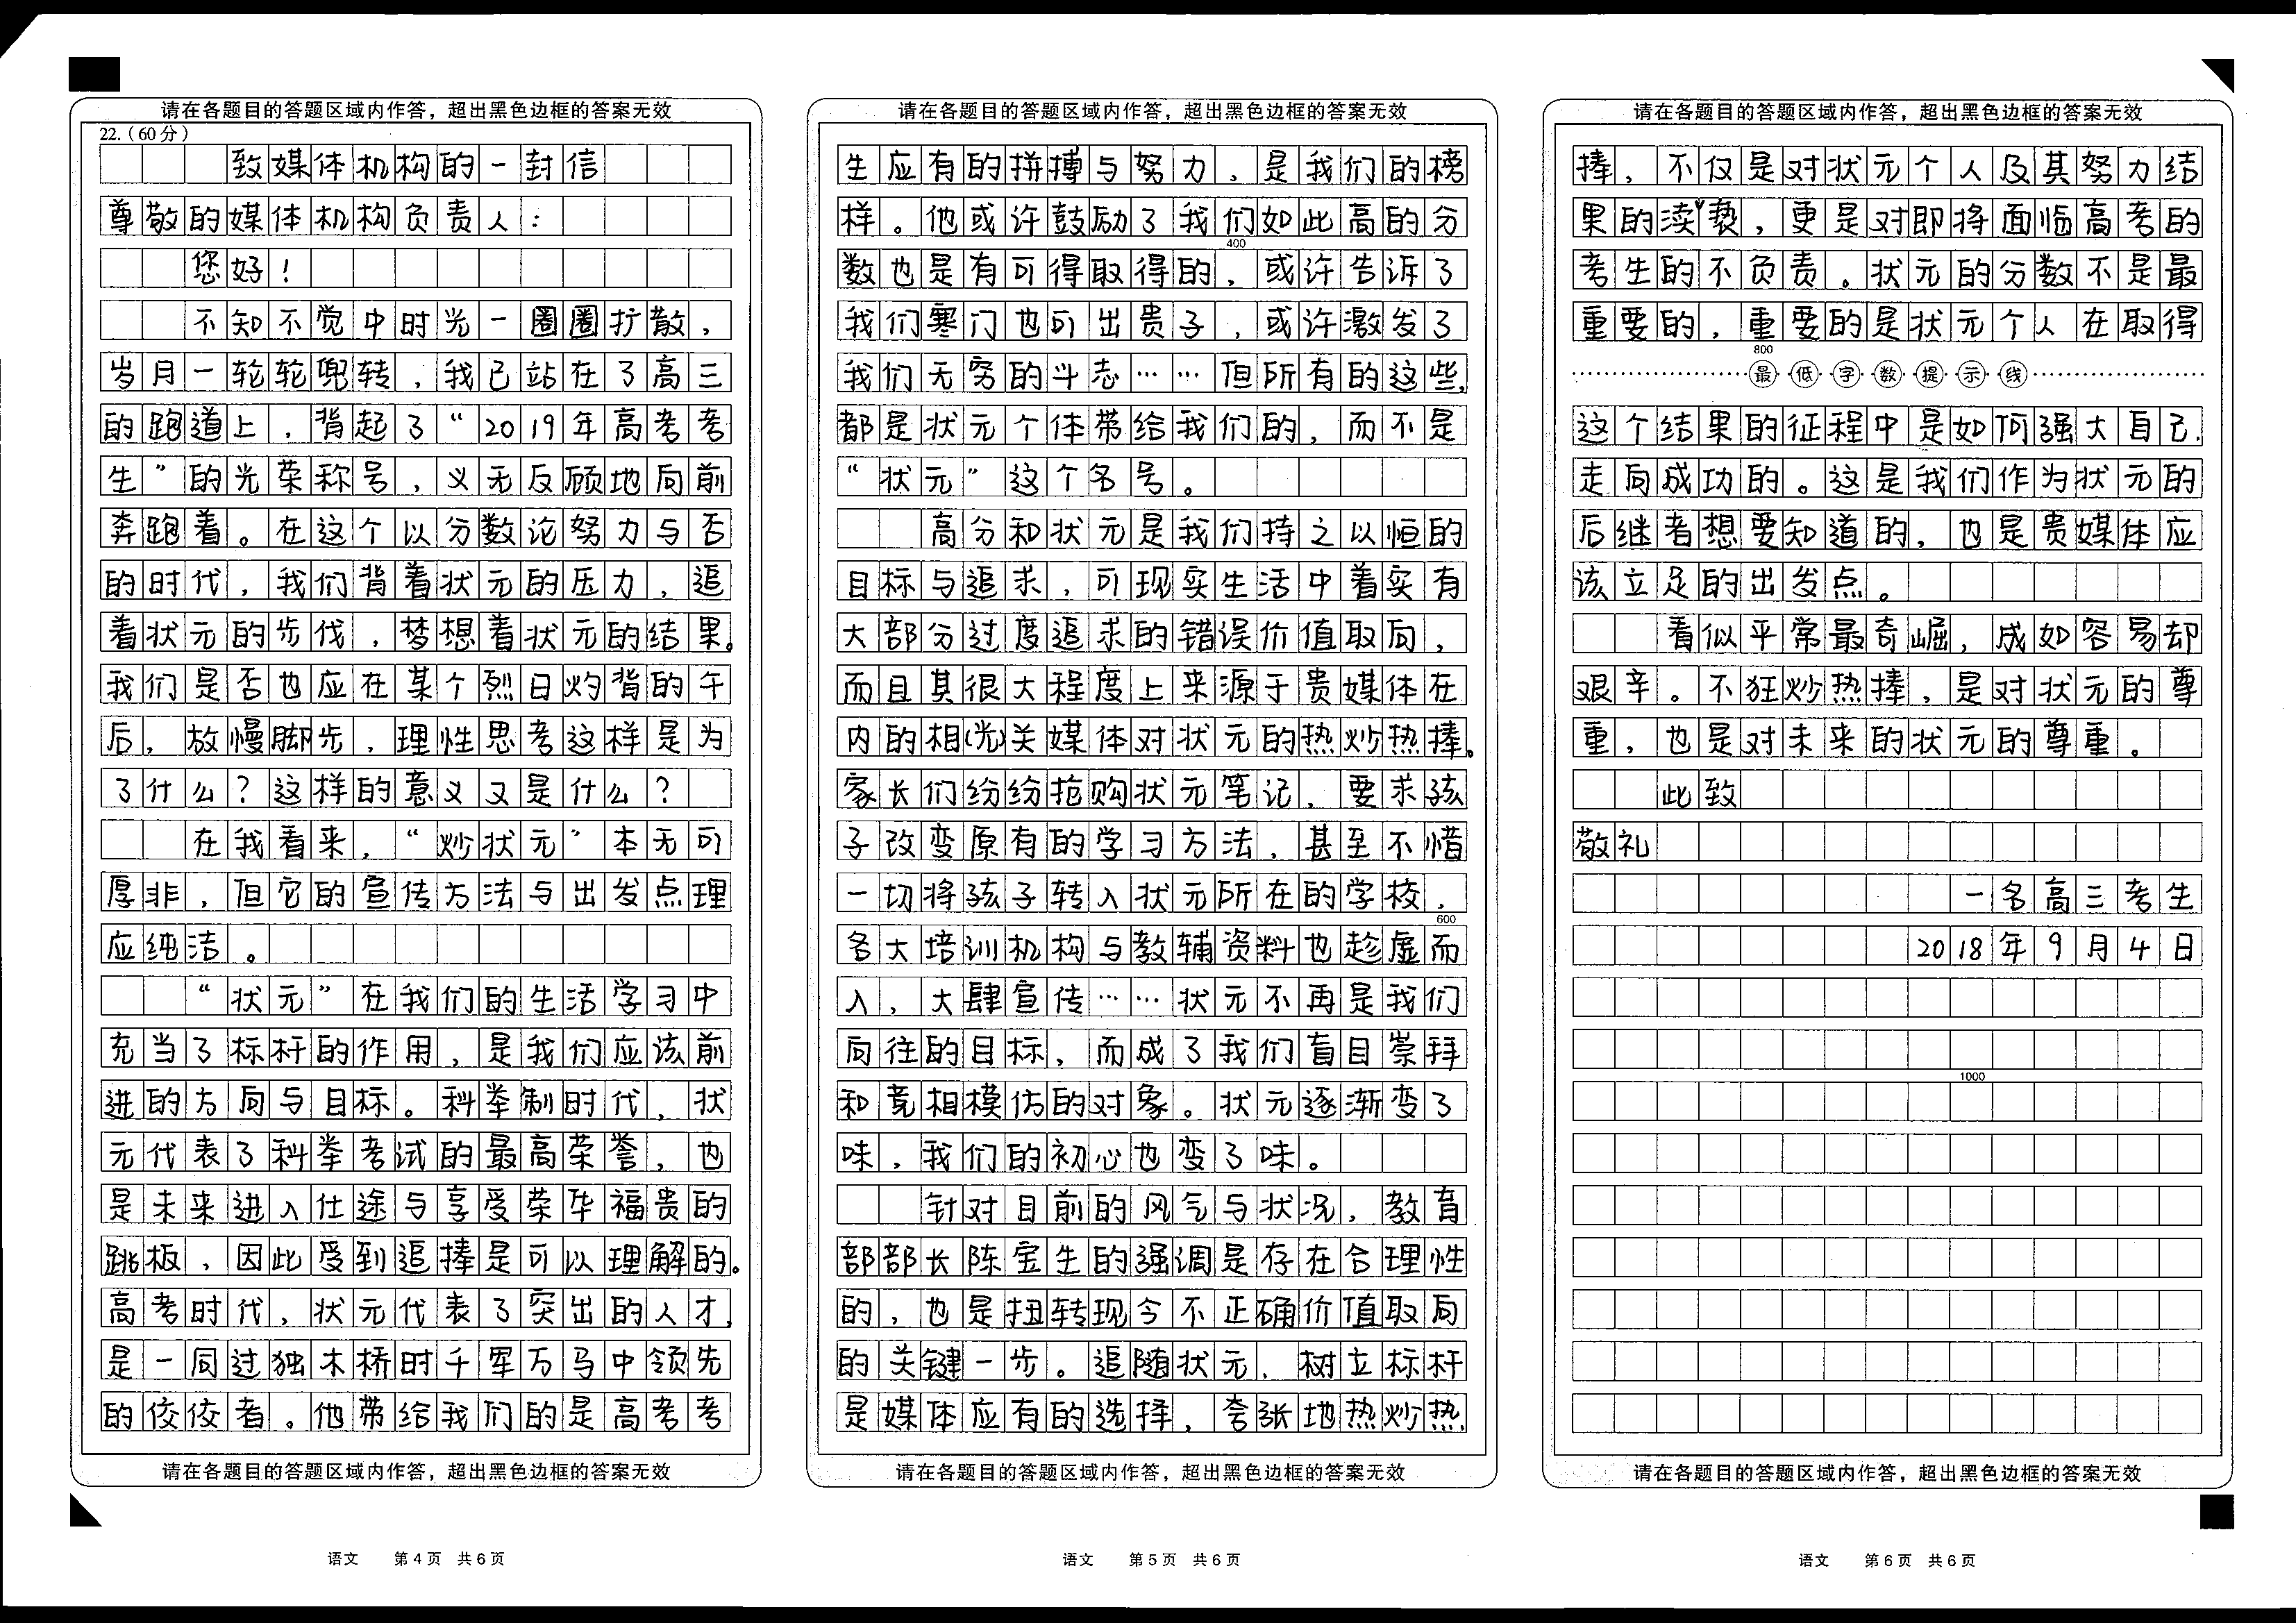 请在各题目的答题区域内作答，超出黑色边框的答案无效
22.（60分）
致媒体机构的一封信
尊敬的媒体机构负责人：
您好！
不知不觉中时光一圈圈扩散，
岁月一轮轮兜转，我已站在了高三
的跑道上，背起了“2019年高考考
生”的光荣称号，义无反顾地向前
奔跑着。在这个以分数论努力与否
的时代，我们背着状元的压力，追
着状元的步伐，梦想着状元的结果。
我们是否也应在某个烈日灼背的午
后，放慢脚步，理性思考这样是为
了什么？这样的意义又是什么？
在我看来，“炒状元”本无可
厚非，但它的宣传方法与出发点理
应纯洁。
“状元”在我们的生活学习中
充当了标杆的作用，是我们应该前
进的方向与目标。科举制时代，状
元代表了科举考试的最高荣誉，也
是未来进入仕途与享受荣华福贵的
跳板，因此受到追捧是可以理解的。
高考时代，状元代表了突出的人才，
是一同过独木桥时千军万马中领先
的佼佼者。他带给我们的是高考考
请在各题目的答题区域内作答，超出黑色边框的答案无效
语文 第4页 共6页
请在各题目的答题区域内作答，超出黑色边框的答案无效
生应有的拼搏与努力，是我们的榜
样。他或许鼓励了我们如此高的分
400
数也是有可得取得的，或许告诉了
我们寒门也可出贵子，或许激发了
我们无穷的斗志……但所有的这些，
都是状元个体带给我们的，而不是
“状元”这个名号。
高分和状元是我们持之以恒的
目标与追求，可现实生活中着实有
大部分过度追求的错误价值取向，
而且其很大程度上来源于贵媒体在
内的相（光）关媒体对状元的热炒热捧。
家长们纷纷抢购状元笔记，要求孩
子改变原有的学习方法，甚至不惜
一切将孩子转入状元所在的学校，
600
各大培训机构与教辅资料也趁虚而
入，大肆宣传……状元不再是我们
向往的目标，而成了我们盲目崇拜
和竞相模仿的对象。状元逐渐变了
味，我们的初心也变了味。
针对目前的风气与状况，教育
部部长陈宝生的强调是存在合理性
的，也是扭转现今不正确价值取向
的关键一步。追随状元，树立标杆
是媒体应有的选择，夸张地热炒热
请在各题目的答题区域内作答，超出黑色边框的答案无效
语文 第5页 共6页
请在各题目的答题区域内作答，超出黑色边框的答案无效
捧，不仅是对状元个人及其努力结
果的渎亵，更是对即将面临高考的
考生的不负责。状元的分数不是最
重要的，重要的是状元个人在取得
800
最低字数提示线
这个结果的征程中是如何强大自己，
走向成功的。这是我们作为状元的
后继者想要知道的，也是贵媒体应
该立足的出发点。
看似平常最奇崛，成如容易却
艰辛。不狂炒热捧，是对状元的尊
重，也是对未来的状元的尊重。
此致
敬礼
一名高三考生
2018年9月4日
1000
请在各题目的答题区域内作答，超出黑色边框的答案无效
语文 第6页 共6页